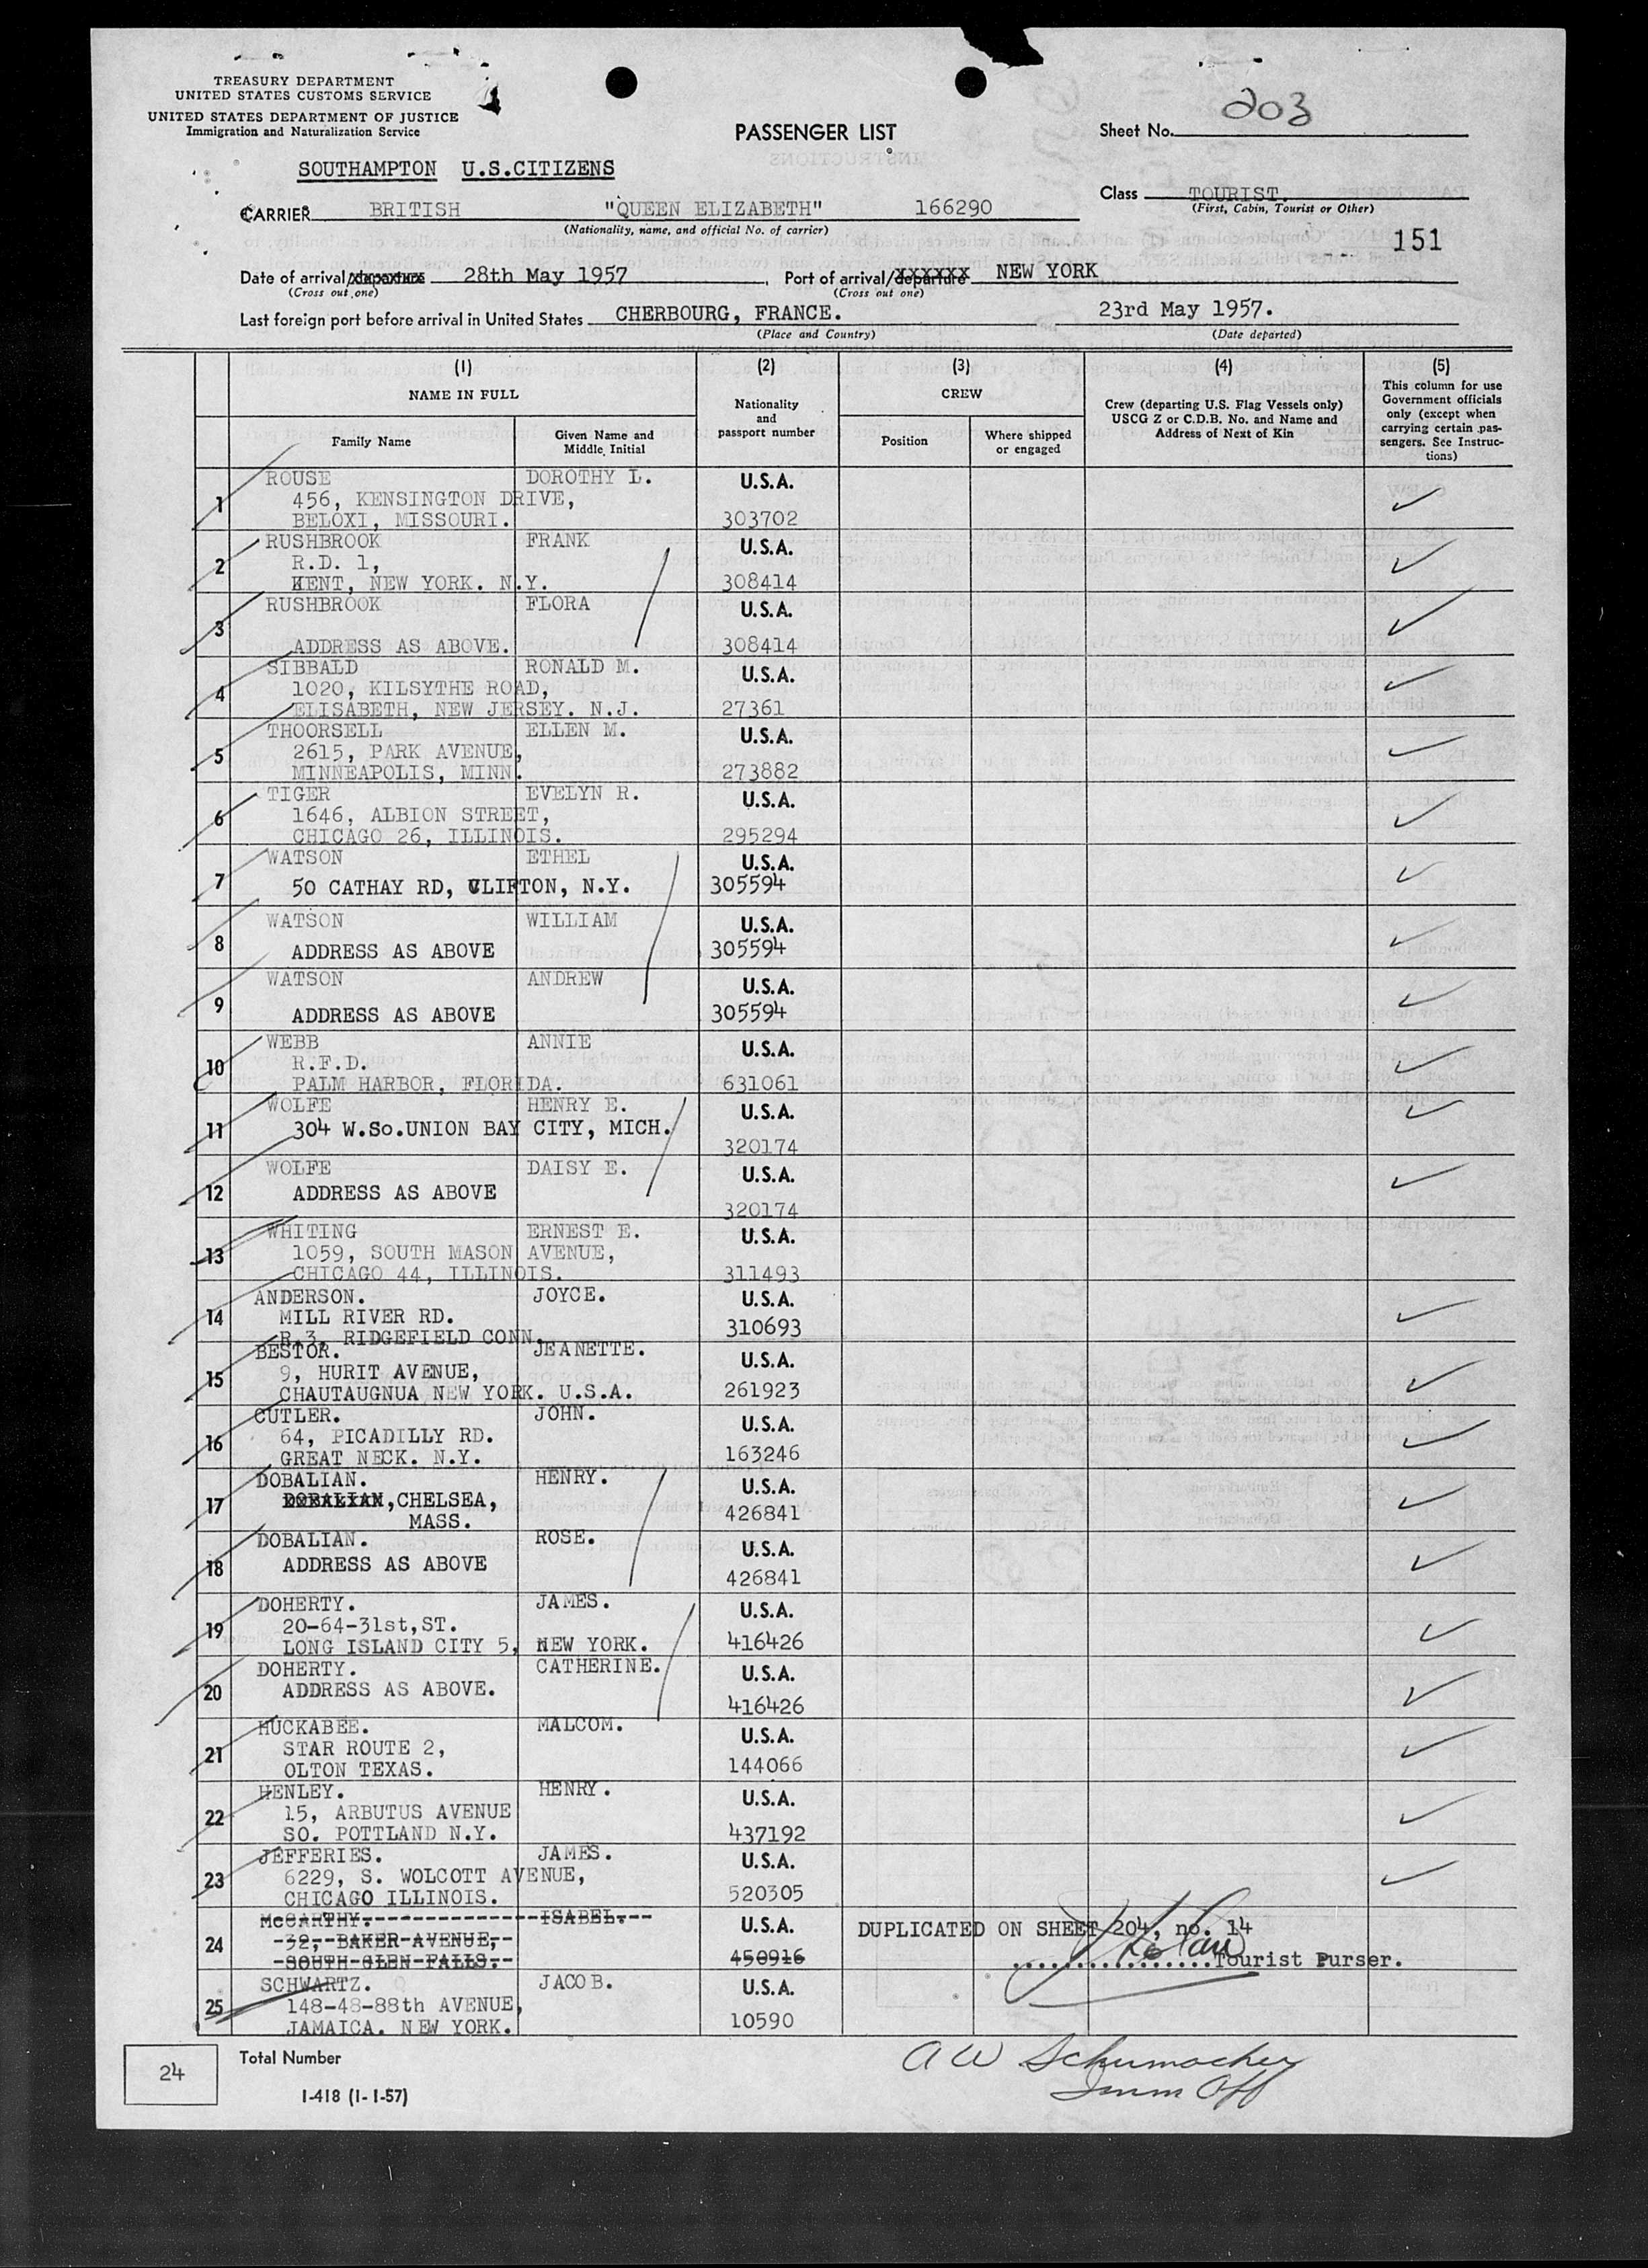 TREASURY DEPARTMENT
UNITED STATES CUSTOMS SERVICE
UNITED STATES DEPARTMENT OF JUSTICE
Immigration and Naturalization Service
PASSENGER LIST
Sheet No. 203
SOUTHAMPTON U.S.CITIZENS
Class TOURIST.
(First, Cabin, Tourist or Other)
CARRIER BRITISH "QUEEN ELIZABETH" 166290
(Nationality, name, and official No. of carrier)
151
Date of arrival/departure 28th May 1957 Port of arrival/departure NEW YORK
(Cross out one) (Cross out one)
Last foreign port before arrival in United States CHERBOURG, FRANCE. 23rd May 1957.
(Place and Country) (Date departed)
(1) (2) (3) (4) (5)
NAME IN FULL
Family Name
Given Name and Middle Initial
Nationality and passport number
CREW
Position
Where shipped or engaged
Crew (departing U.S. Flag Vessels only)
USCG Z or C.D.B. No. and Name and
Address of Next of Kin
This column for use
Government officials
only (except when
carrying certain pas-
sengers. See Instruc-
tions)
1 ROUSE DOROTHY L. U.S.A.
456, KENSINGTON DRIVE,
BELOXI, MISSOURI. 303702
2 RUSHBROOK FRANK U.S.A.
R.D. 1,
KENT, NEW YORK. N.Y. 308414
3 RUSHBROOK FLORA U.S.A.
ADDRESS AS ABOVE. 308414
4 SIBBALD RONALD M. U.S.A.
1020, KILSYTHE ROAD,
ELISABETH, NEW JERSEY. N.J. 27361
5 THOORSELL ELLEN M. U.S.A.
2615, PARK AVENUE,
MINNEAPOLIS, MINN. 273882
6 TIGER EVELYN R. U.S.A.
1646, ALBION STREET,
CHICAGO 26, ILLINOIS. 295294
7 WATSON ETHEL U.S.A.
50 CATHAY RD, CLIFTON, N.Y. 305594
8 WATSON WILLIAM U.S.A.
ADDRESS AS ABOVE 305594
9 WATSON ANDREW U.S.A.
ADDRESS AS ABOVE 305594
10 WEBB ANNIE U.S.A.
R.F.D.
PALM HARBOR, FLORIDA. 631061
11 WOLFE HENRY E. U.S.A.
304 W.So.UNION BAY CITY, MICH.
320174
12 WOLFE DAISY E. U.S.A.
ADDRESS AS ABOVE
320174
13 WHITING ERNEST E. U.S.A.
1059, SOUTH MASON AVENUE,
CHICAGO 44, ILLINOIS. 311493
14 ANDERSON. JOYCE. U.S.A.
MILL RIVER RD. 310693
R.3, RIDGEFIELD CONN.
15 BESTOR. JEANETTE. U.S.A.
9, HURIT AVENUE,
CHAUTAUGNUA NEW YORK. U.S.A. 261923
16 CUTLER. JOHN. U.S.A.
64, PICADILLY RD.
GREAT NECK. N.Y. 163246
17 DOBALIAN. HENRY. U.S.A.
DOBALIAN,CHELSEA, 426841
MASS.
18 DOBALIAN. ROSE. U.S.A.
ADDRESS AS ABOVE 426841
19 DOHERTY. JAMES. U.S.A.
20-64-31st,ST.
LONG ISLAND CITY 5, NEW YORK. 416426
20 DOHERTY. CATHERINE. U.S.A.
ADDRESS AS ABOVE. 416426
21 HUCKABEE. MALCOM. U.S.A.
STAR ROUTE 2,
OLTON TEXAS. 144066
22 HENLEY. HENRY. U.S.A.
15, ARBUTUS AVENUE
SO. POTTLAND N.Y. 437192
23 JEFFERIES. JAMES. U.S.A.
6229, S. WOLCOTT AVENUE,
CHICAGO ILLINOIS. 520305
24 McCARTHY. ISABEL. U.S.A. DUPLICATED ON SHEET 204, no. 14
32, BAKER AVENUE,
SOUTH GLEN FALLS. 450916 Tourist Purser.
25 SCHWARTZ. JACOB. U.S.A.
148-48-88th AVENUE,
JAMAICA. NEW YORK. 10590
24 Total Number
A W Schumacher
Imm Off
I-418 (1-1-57)